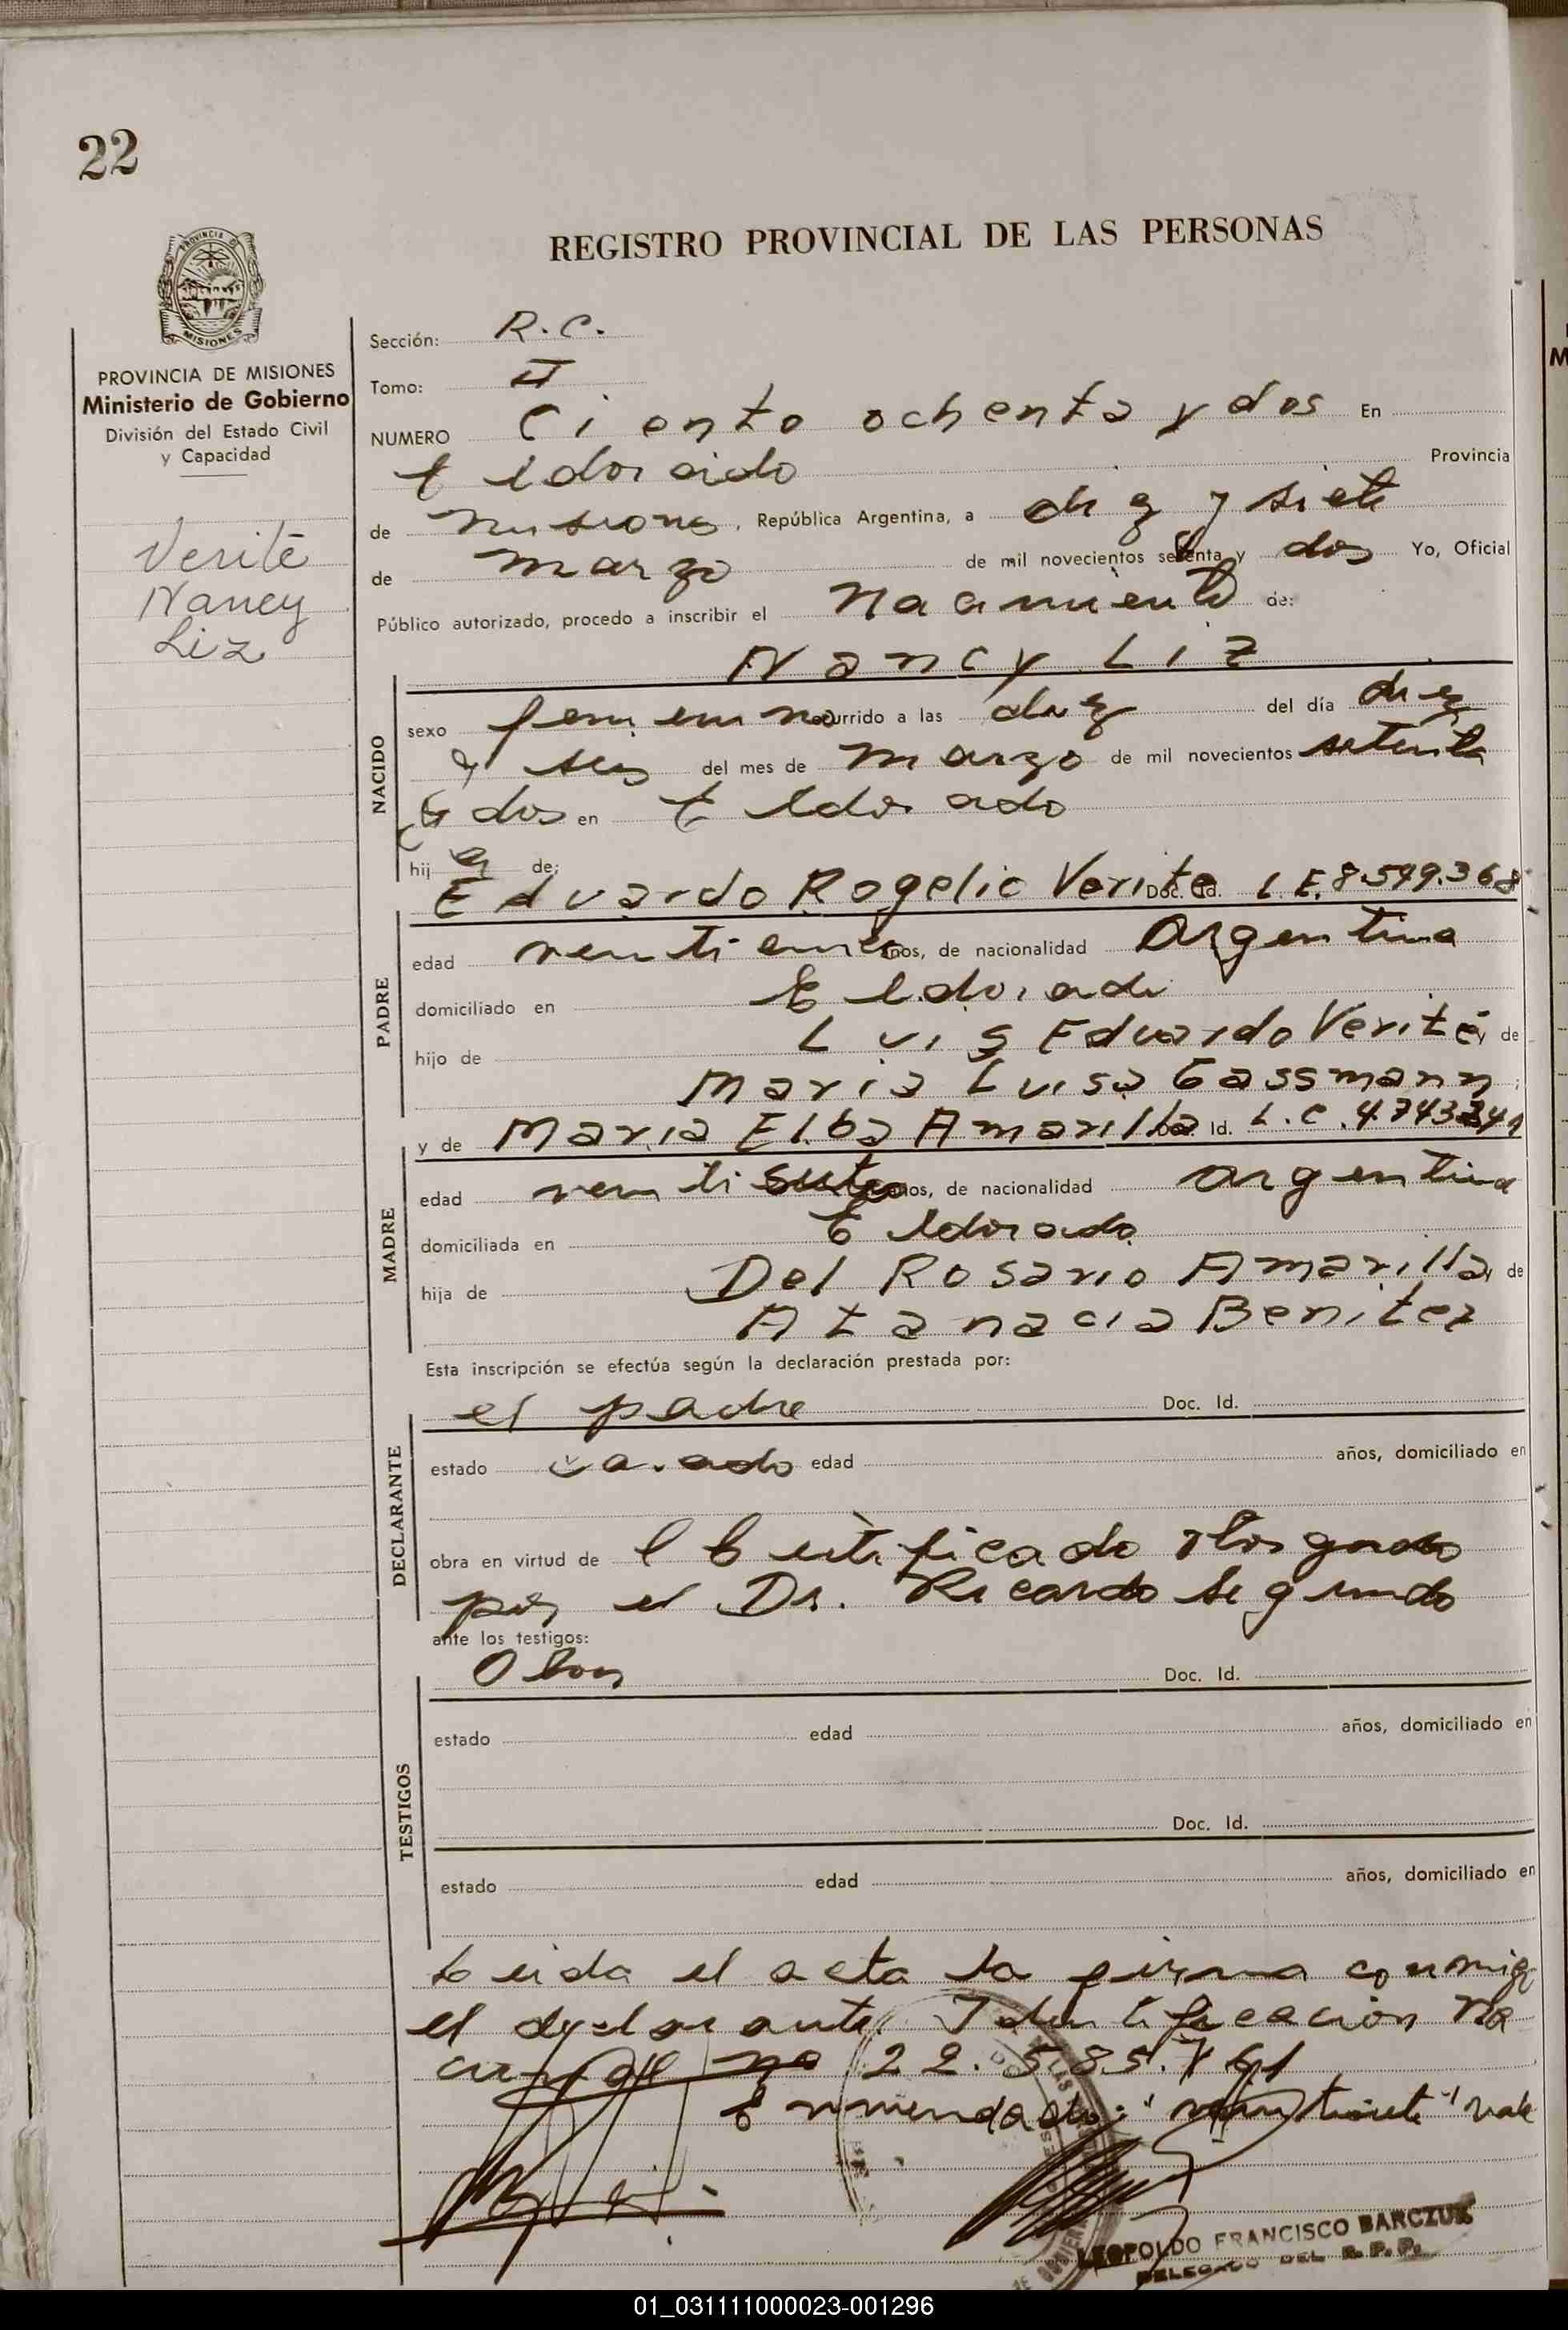 22
REGISTRO PROVINCIAL DE LAS PERSONAS
PROVINCIA DE MISIONES
Ministerio de Gobierno
División del Estado Civil
y Capacidad
Verité
Nancy
Liz
Sección: R.C.
Tomo: II
NUMERO Ciento ochenta y dos En
Eldorado Provincia
de Misiones, República Argentina, a diez y siete
de marzo de mil novecientos setenta y dos Yo, Oficial
Público autorizado, procedo a inscribir el Nacimiento de:
Nancy Liz
NACIDO
sexo femenino ocurrido a las diez del día diez
y seis del mes de marzo de mil novecientos setenta
y dos en Eldorado
hija de:
Eduardo Rogelio Verite Doc. Id. L.E. 8.549.368
PADRE
edad años, de nacionalidad Argentina
domiciliado en Eldorado
hijo de Luis Eduardo Verité y de
Maria Luisa Gassmann;
y de Maria Elba Amarilla Doc. Id. L.C. 4.743.241
MADRE
edad ventisiete años, de nacionalidad argentina
domiciliada en Eldorado
hija de Del Rosario Amarilla y de
Atanacia Benitez
Esta inscripción se efectúa según la declaración prestada por:
el padre Doc. Id.
DECLARANTE
estado casado edad años, domiciliado en
obra en virtud de Certificado otorgado
por el Dr. Ricardo Segundo
ante los testigos:
Doc. Id.
TESTIGOS
estado edad años, domiciliado en
Doc. Id.
estado edad años, domiciliado en
Leida el acta la firma conmigo
el declarante. Identificacion Na
cional no 22.585.761
Enmendado: "ventisiete" vale
LEOPOLDO FRANCISCO BARCZUK
DELEGADO DEL R.P.P.
01_031111000023-001296